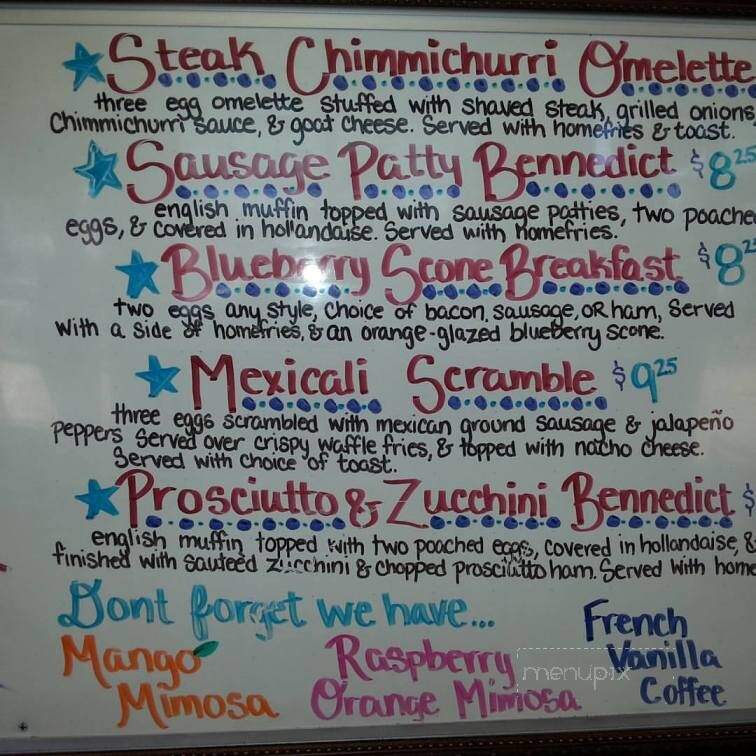 Steak Chimmichurri Omelette
three egg omelette stuffed with shaved steak, grilled onions,
Chimmichurri sauce, & goat cheese. Served with homefries & toast.
Sausage Patty Bennedict $8.25
english muffin topped with sausage patties, two poached
eggs, & covered in hollandaise. Served with homefries.
Blueberry Scone Breakfast $8.2
two eggs any style, choice of bacon, sausage, OR ham, Served
with a side of homefries, & an orange-glazed blueberry scone.
Mexicali Scramble $9.25
three eggs scrambled with mexican ground sausage & jalapeño
peppers served over crispy waffle fries, & topped with nacho cheese.
Served with choice of toast.
Prosciutto & Zucchini Bennedict $
english muffin topped with two poached eggs, covered in hollandaise, &
finished with sauteed zucchini & chopped prosciutto ham. Served with home
Dont forget we have...
Mango
Mimosa
Raspberry
Orange Mimosa
French
Vanilla
Coffee
menupix